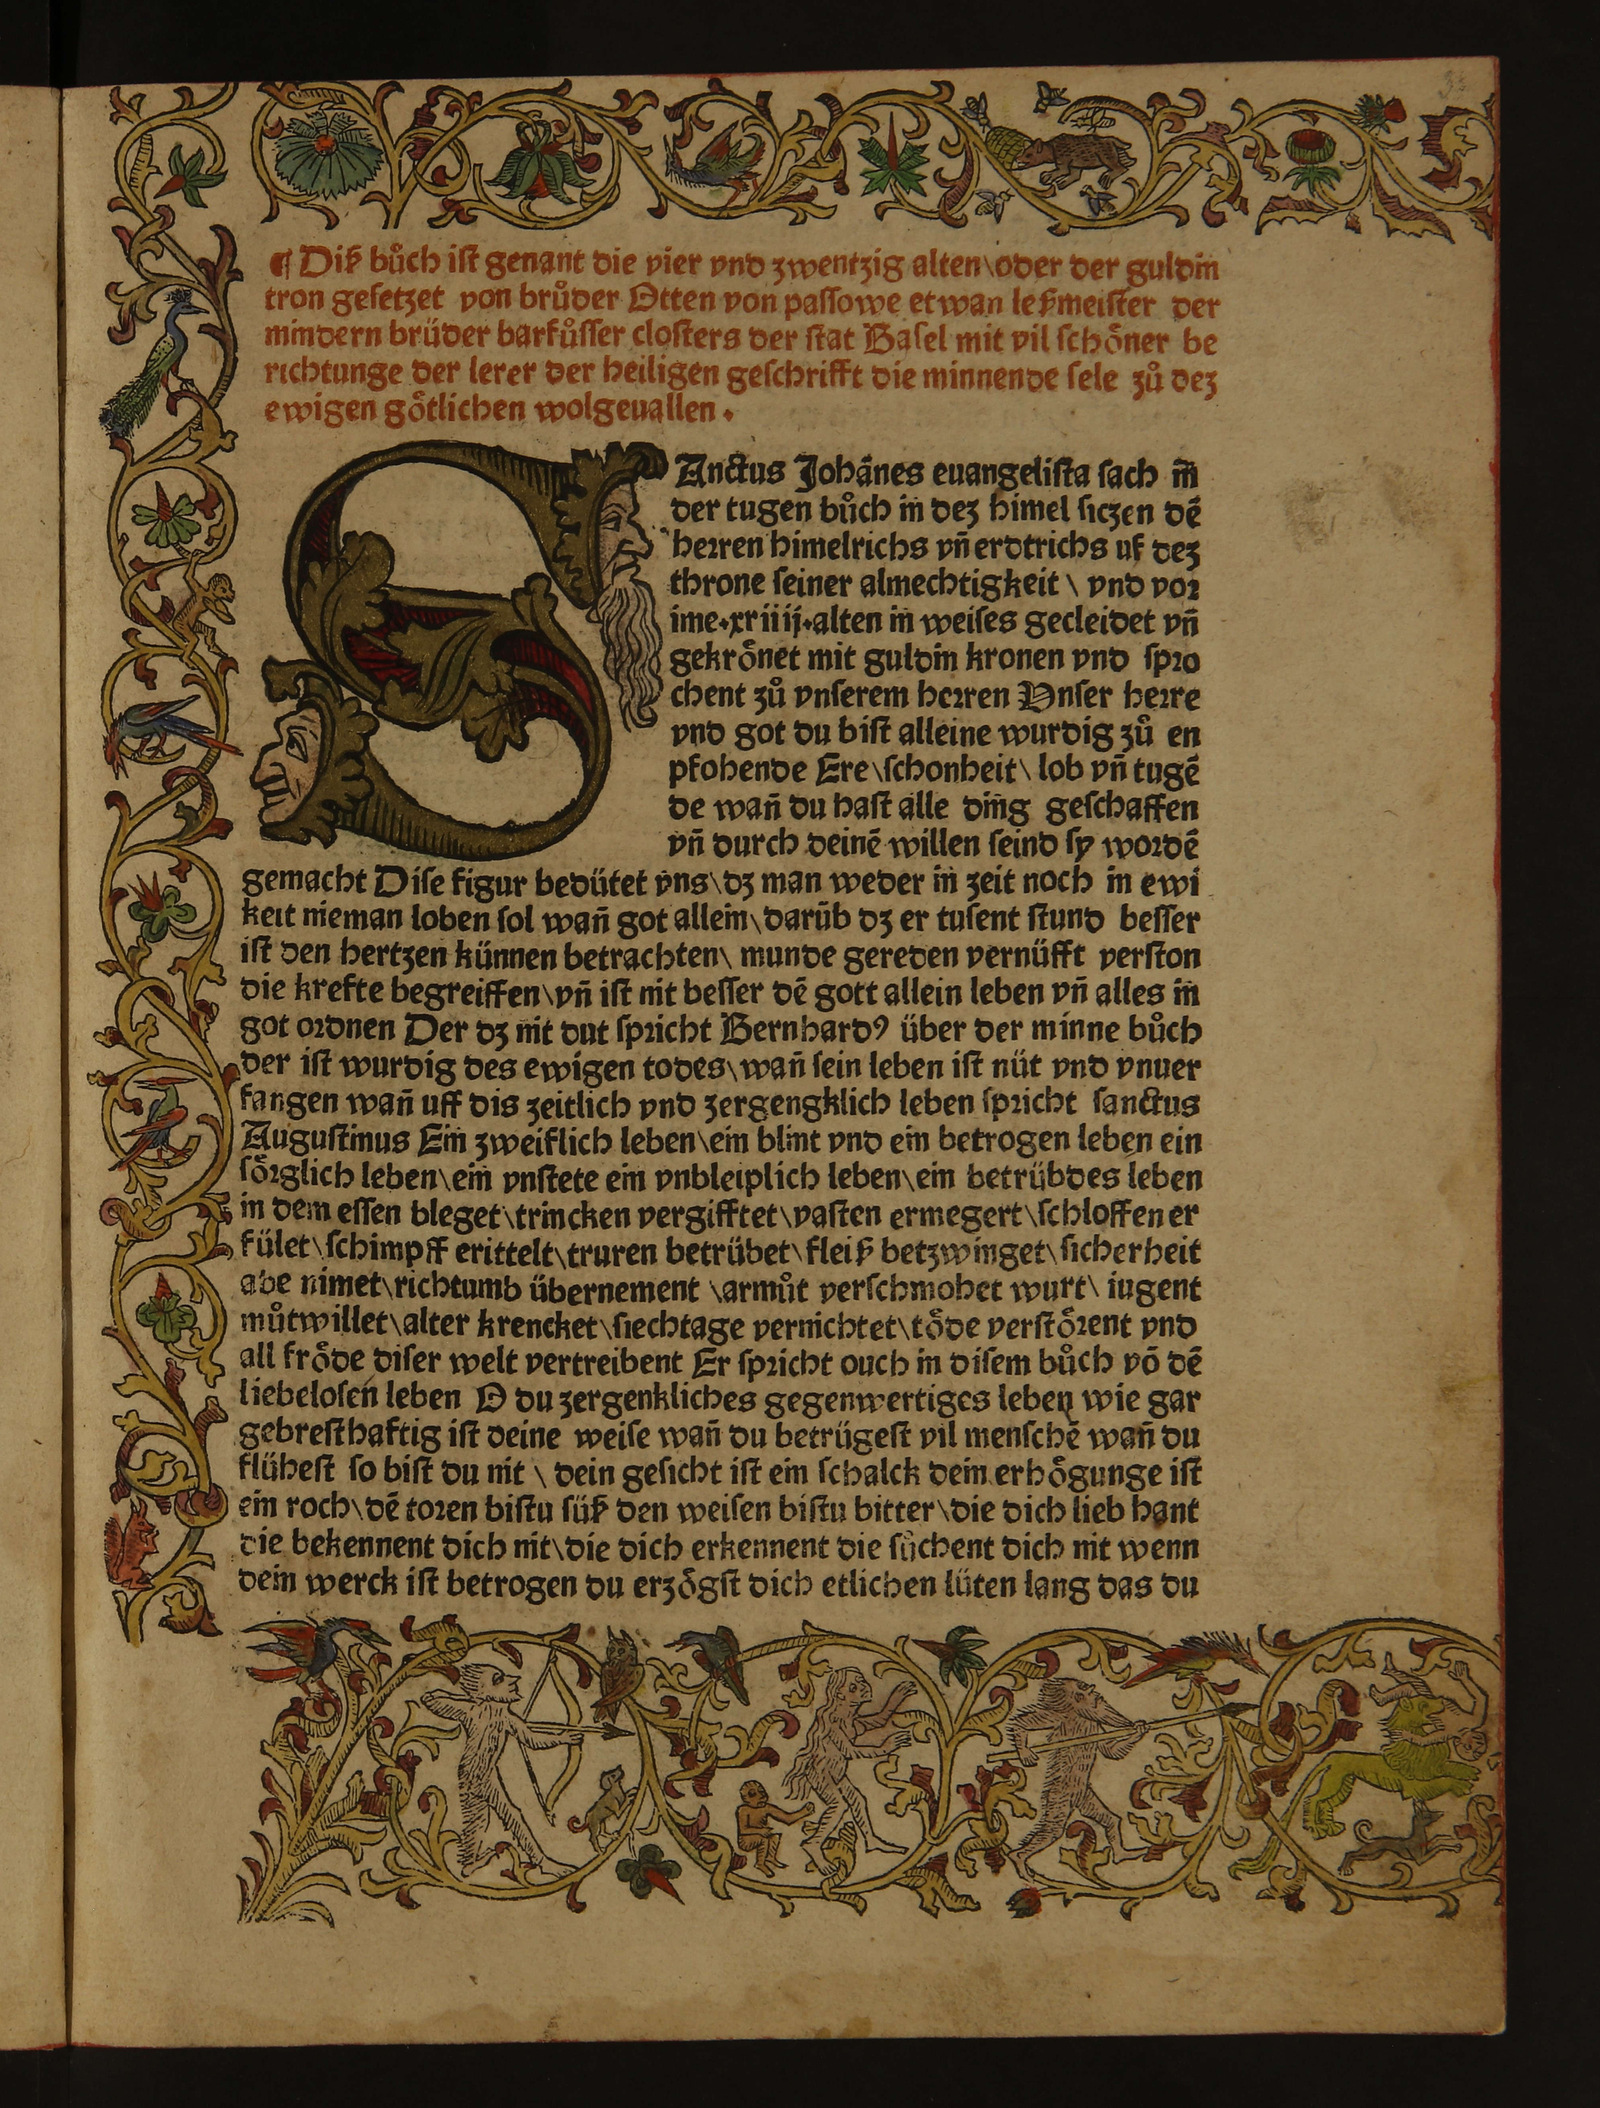 ¶ Diß bůch ist genant die vier vnd zwentzig alten\oder der guldin
tron gesetzet von brůder Otten von passowe etwan leßmeister der
mindern brüder barfůsser closters der stat Basel mit vil schoͤner be
richtunge der lerer der heiligen geschrifft die minnende sele zů dez
ewigen goͤtlichen wolgeuallen.
SAnctus Johānes euangelista sach in
der tugen bůch in dez himel siczen dē
herren himelrichs vn̄ erdtrichs uf dez
throne seiner almechtigkeit \ vnd vor
ime.xxiiij.alten in weises gecleidet vn̄
gekroͤnet mit guldin kronen vnd spro
chent zů vnserem herren Vnser herre
vnd got du bist alleine wurdig zů en
pfohende Ere\schonheit\ lob vn̄ tugē
de wan̄ du hast alle ding geschaffen
vn̄ durch deinē willen seind sy wordē
gemacht Dise figur bedütet vns\dz man weder in zeit noch in ewi
keit nieman loben sol wan̄ got allein\darūb dz er tusent stund besser
ist den hertzen künnen betrachten\ munde gereden vernüfft verston
die krefte begreiffen\vn̄ ist nit besser dē gott allein leben vn̄ alles in
got ordnen Der dz nit dut spricht Bernhardꝰ über der minne bůch
der ist wurdig des ewigen todes\wan̄ sein leben ist nüt vnd vnuer
fangen wan̄ uff dis zeitlich vnd zergengklich leben spricht sanctus
Augustinus Ein zweiflich leben\ein blint vnd ein betrogen leben ein
soͤrglich leben\ein vnstete ein vnbleiplich leben\ein betrübdes leben
in dem essen bleget\trincken vergifftet\vasten ermegert\schloffen er
fület\schimpff erittelt\truren betrübet\fleiß betzwinget\sicherheit
abe nimet\richtumb übernement \armůt verschmohet wurt\ iugent
můtwillet\alter krencket\siechtage vernichtet\toͤde verstoͤrent vnd
all froͤde diser welt vertreibent Er spricht ouch in disem bůch vō dē
liebelosen leben O du zergenkliches gegenwertiges leben wie gar
gebresthaftig ist deine weise wan̄ du betrügest vil menschē wan̄ du
flühest so bist du nit \ dein gesicht ist ein schalck dein erhoͤgunge ist
ein roch\dē toren bistu süß den weisen bistu bitter\die dich lieb hant
die bekennent dich nit\die dich erkennent die sůchent dich nit wenn
dein werck ist betrogen du erzoͤgst dich etlichen lüten lang das du